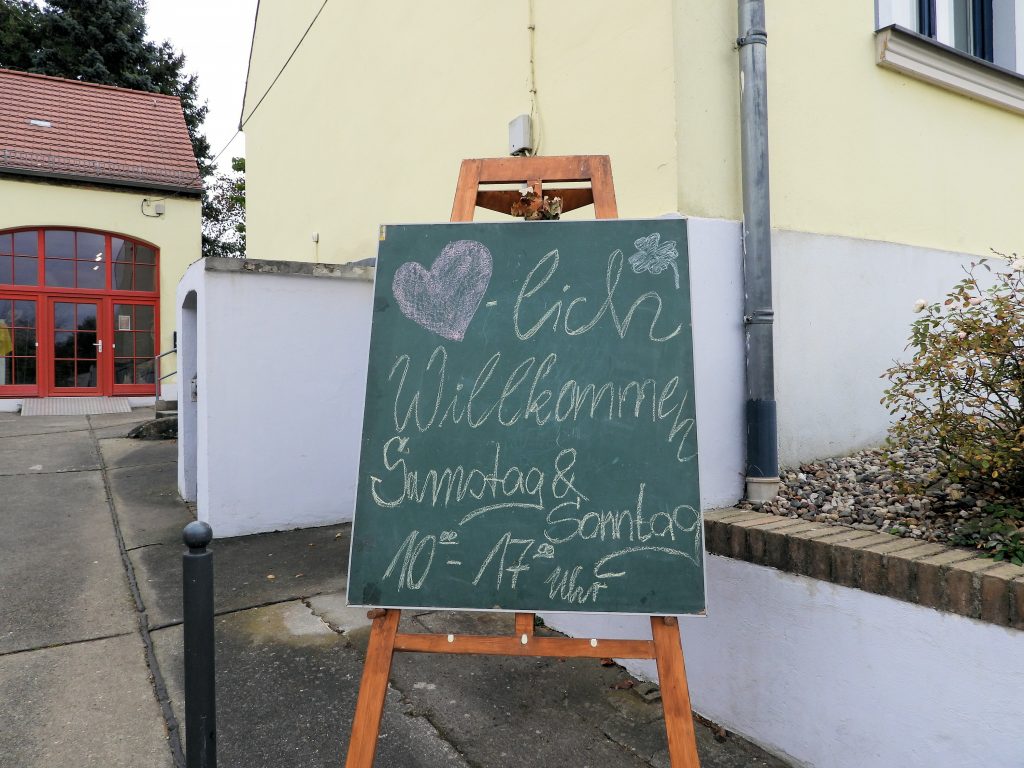 -lich
Willkommen
Samstag &
Sonntag
10⁰⁰ - 17⁰⁰ Uhr